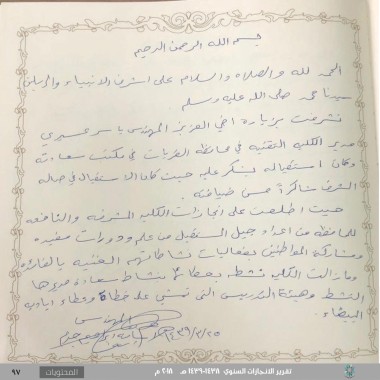 بسم الله الرحمن الرحيم
الحمد لله والصلاه والسلام على اشرف الانبياء والمرسلين
سيدنا محمد صلى الله عليه وسلم
تشرفت بزيارة اخي العزيز المهندس ياسر عسيري
مدير الكليه التقنيه في محافظة القريات في مكتب سعادته
وكان استقباله يشكر عليه حيث كان الاستقبال في صاله
الشرف شاكراً حسن ضيافته
حيث اطلعت على انجازات الكليه المشرفه والنافعه
للمحافظه من اعداد جيل المستقبل من علم ودورات مفيده
ومشاركة المواطنين بفعاليات نشاطاتهم الفنيه بالفائده
وما زالت الكليه نشطه بنشاط سعادة مديرها
النشط وهيئة التدريس التي تمشي على خطاه وعطاء اياديه
البيضاء
١٤٣٩/٢/٢٥
٩٧
المحتويات
تقرير الانجازات السنوي ١٤٣٨-١٤٣٩ هـ ٢٠١٨ م